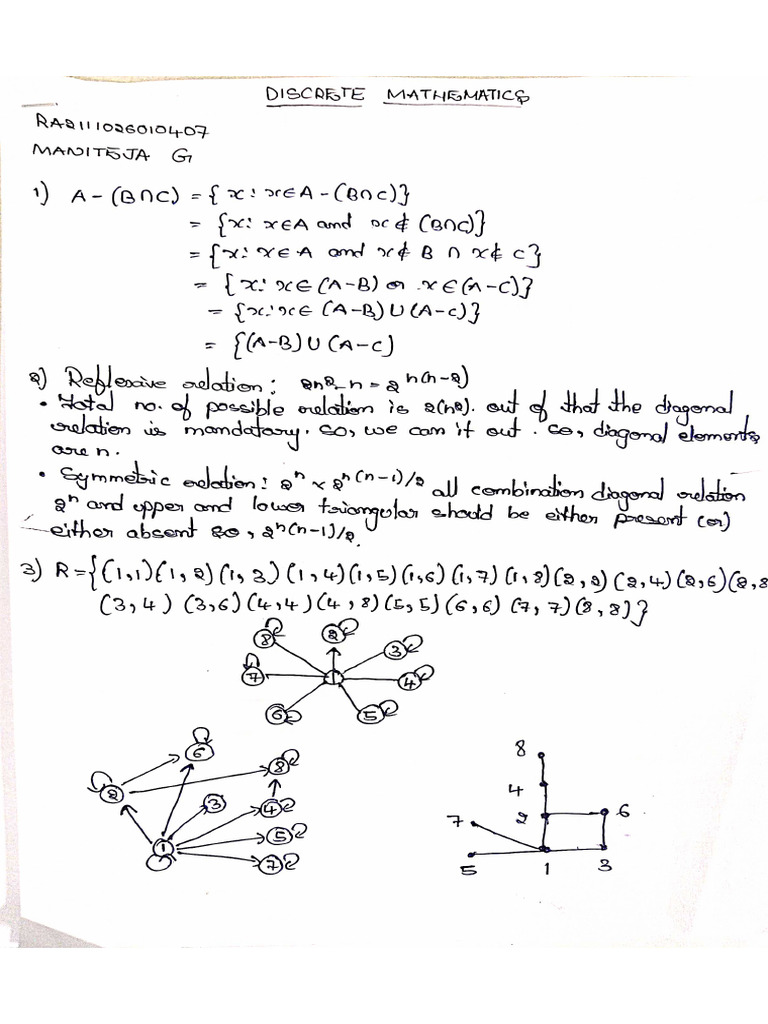 DISCRETE MATHEMATICS
RA2111026010407
MANITEJA G
1) A - (B∩C) = { x : x∈A - (B∩C)}
= {x : x∈A and x ∉ (B∩C)}
= {x : x∈A and x∉ B ∩ x∉ C}
= {x : x∈ (A-B) or x∈(A-C)}
= {x : x∈ (A-B) ∪ (A-C)}
= {(A-B) ∪ (A-C)
2) Reflexive relation : 2n2-n = 2^n(n-2)
• Total no. of possible relation is 2(n2). out of that the diagonal
relation is mandatory. so, we can it out. so, diagonal elements
are n.
• Symmetric relation : 2^n × 2^n(n-1)/2 all combination diagonal relation
2^n and upper and lower triangular should be either present (or)
either absent so, 2^n(n-1)/2.
3) R = {(1,1)(1,2)(1,3)(1,4)(1,5)(1,6)(1,7)(1,8)(2,2)(2,4)(2,6)(2,8
(3,4) (3,6)(4,4)(4,8)(5,5)(6,6)(7,7)(8,8)}
8 2 3
7 1 4
6 5
6
2 8
3 4
1 5
7
8
4
7 2 6
5 1 3